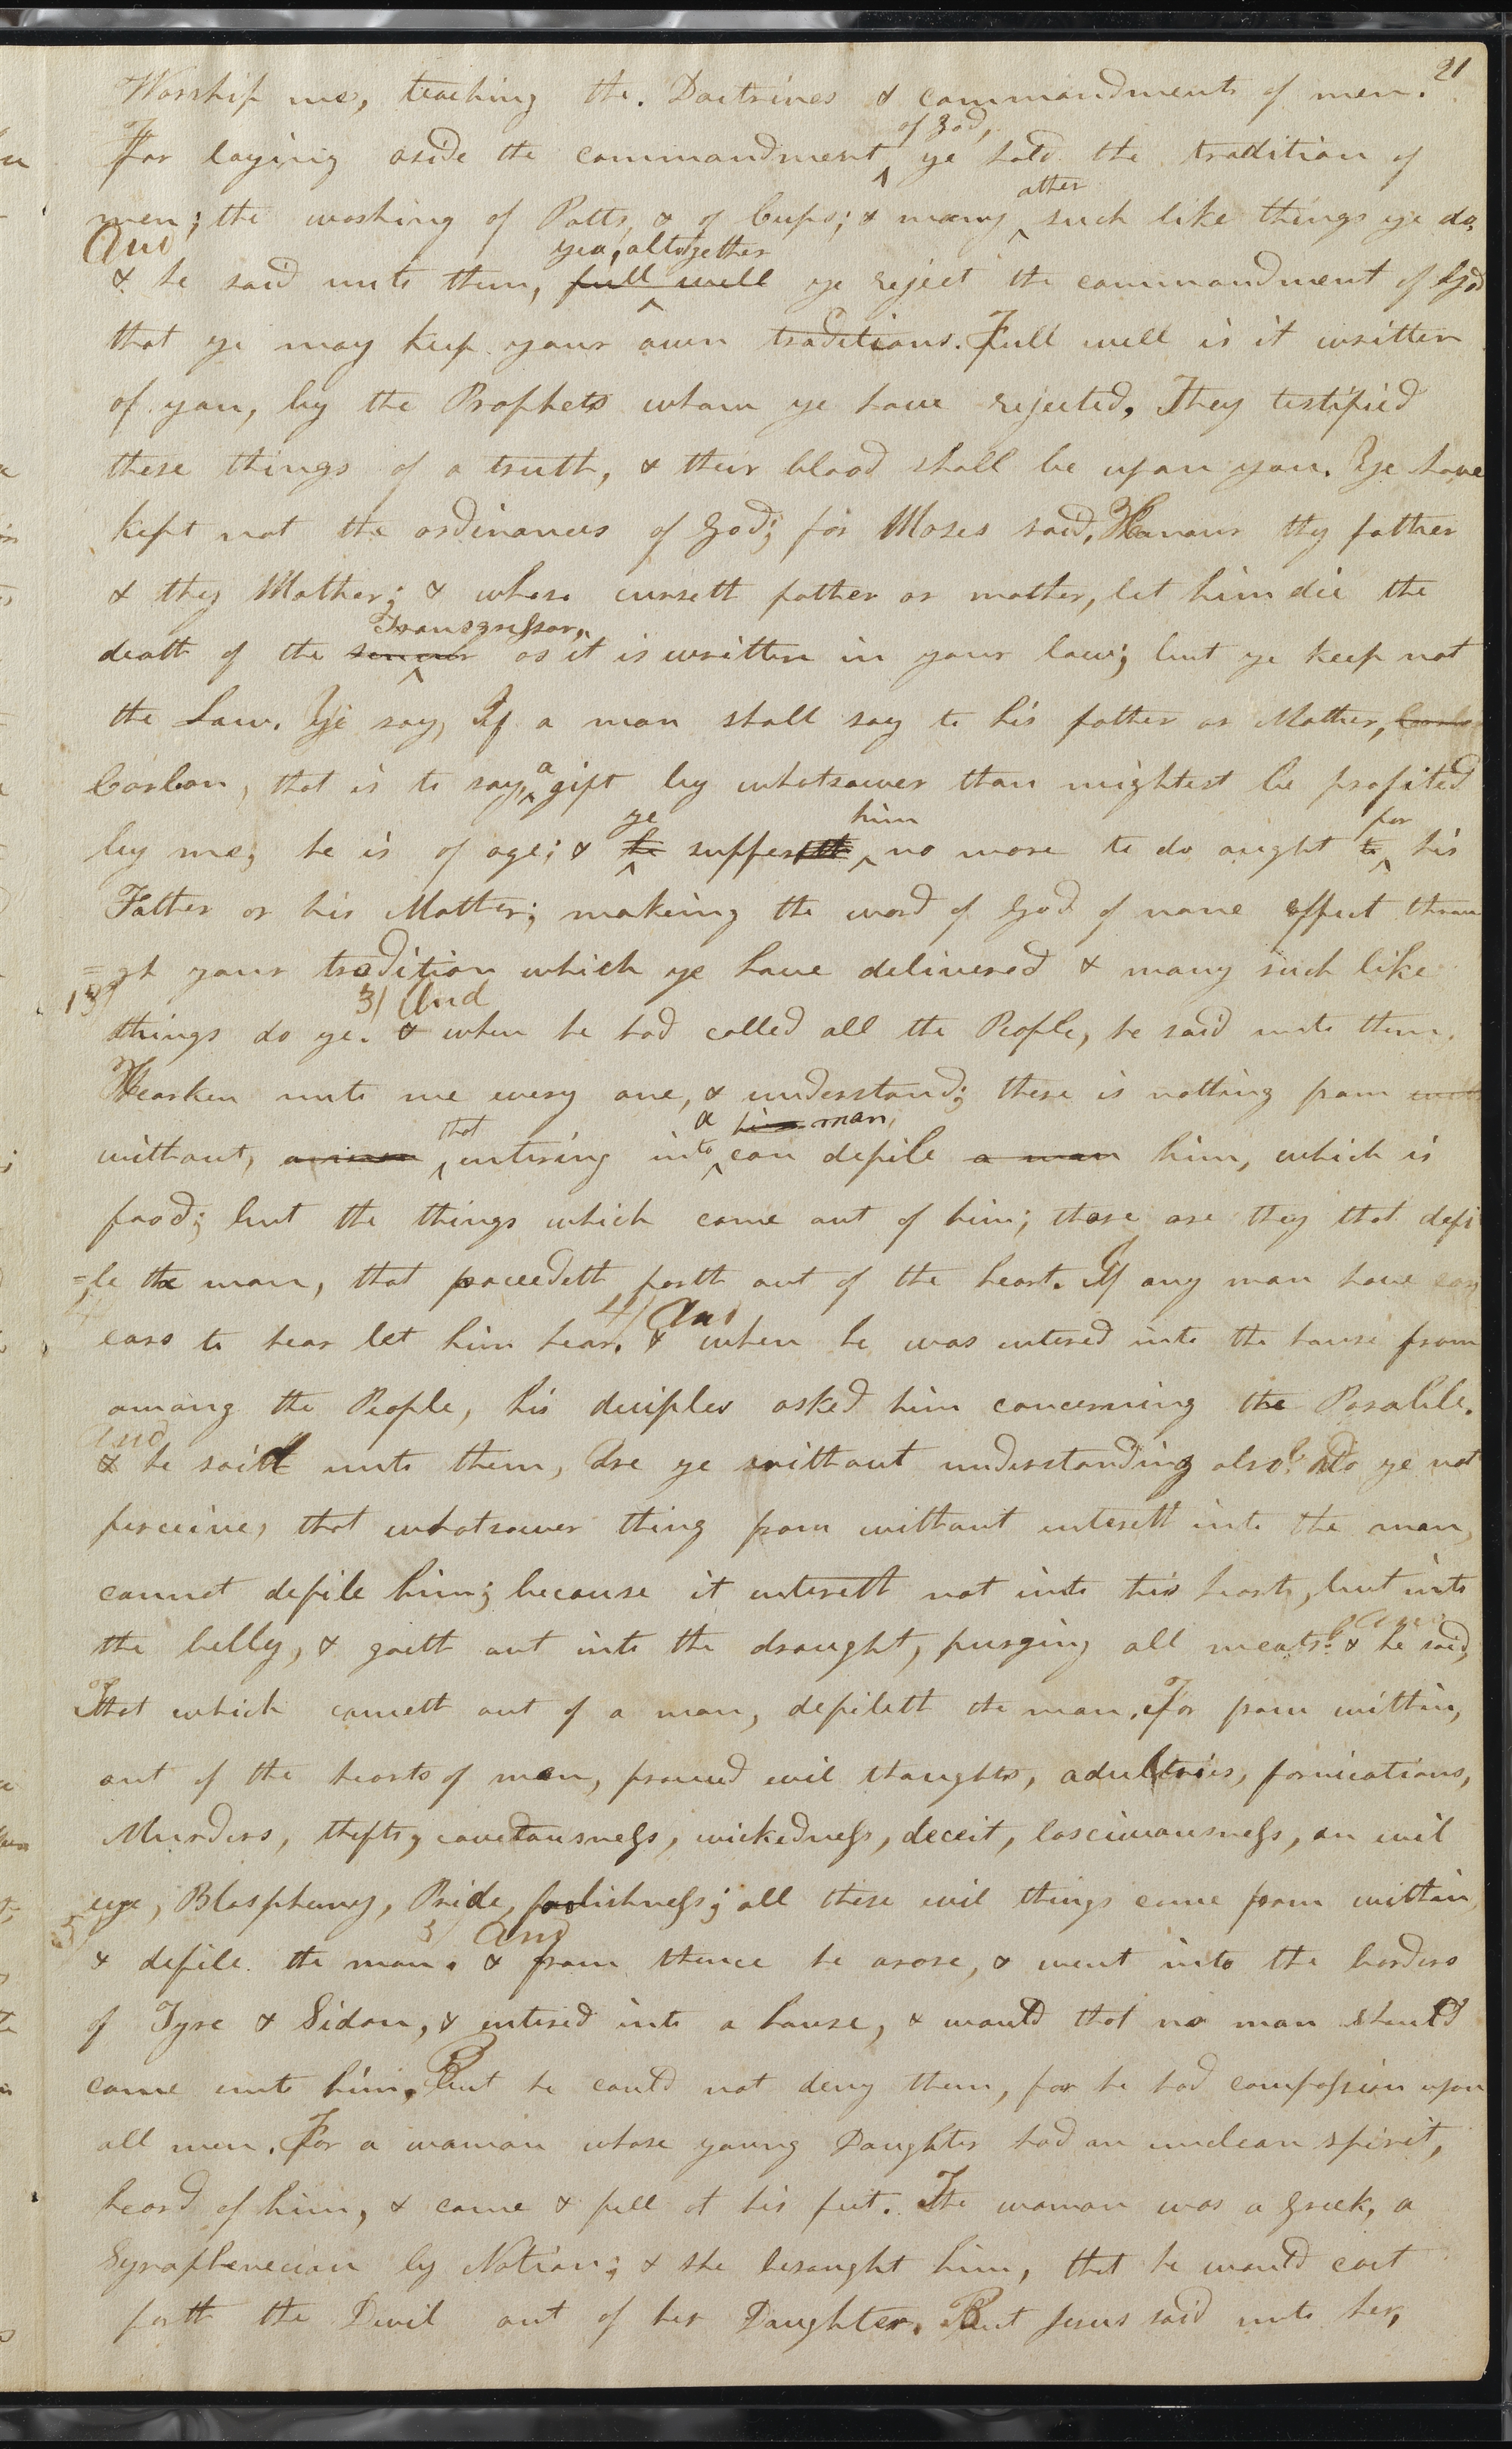 21
Worship me, teaching the. Doctrines & commandments of men.
of God,
For laying aside the commandment ye hold the tradition of
other
men; the washing of Potts, & of Cups; & many such like things ye do,
And
yea, altogether
& he said unto them, full well ye reject the commandment of God
that ye may keep your own traditions. Full well is it written
of you, by the Prophets whom ye have rejected, They testified
these things of a truth, & their blood shall be upon you. Ye have
kept not the ordinances of God; for Moses said, Honour thy father
& thy Mother; & whoso curseth father or mother, let him die the
Transgressor,
death of the as it is written in your law; but ye keep not
the Law. Ye say, If a man shall say to his father or Mother,
Corban, that is to say, a gift by whatsoever thou mightest be profited
ye him for
by me, he is of age; & he suffereth no more to do aught to his
Father or his Mother; making the word of God of none effect throu
=gh your tradition which ye have delivered & many such like
3/ And
things do ye. & when he had called all the People, he said unto them.
Hearken unto me every one, & understand; there is nothing from
that a him man,
without, entering into can defile a man him, which is
food; but the things which come out of him; those are they that defi
=le the man, that proceedeth forth out of the heart. If any man have ears
4/ And
ears to hear let him hear. & when he was entered into the house from
among the People, his deciples asked him concerning the Parable.
And
& he said unto them, Are ye without understanding also? Do ye not
perceive, that whatsoever thing from without entereth into the man,
cannot defile him; because it entereth not into his heart, but into
And
the belly, & goeth out into the draught, purging all meats? & he said,
That which cometh out of a man, defileth the man. For from within,
out of the hearts of men, proceed evil thoughts, adulteries, fornications,
Murders, thefts, covetousness, wickedness, deceit, lasciviousness, an evil
eye, Blasphemy, Pride, foolishness; all these evil things come from within
5/ And
& defile the man. & from thence he arose, & went into the borders
of Tyre & Sidon, & entered into a house, & would that no man should
come unto him, But he could not deny them, for he had compassion upon
all men. For a woman whose young Daughter had an unclean spirit,
heard of him, & came & fell at his feet. The woman was a Greek, a
Syrophenecian by Nation; & she besought him, that he would cast
forth the Devil out of her Daughter. But Jesus said unto her,